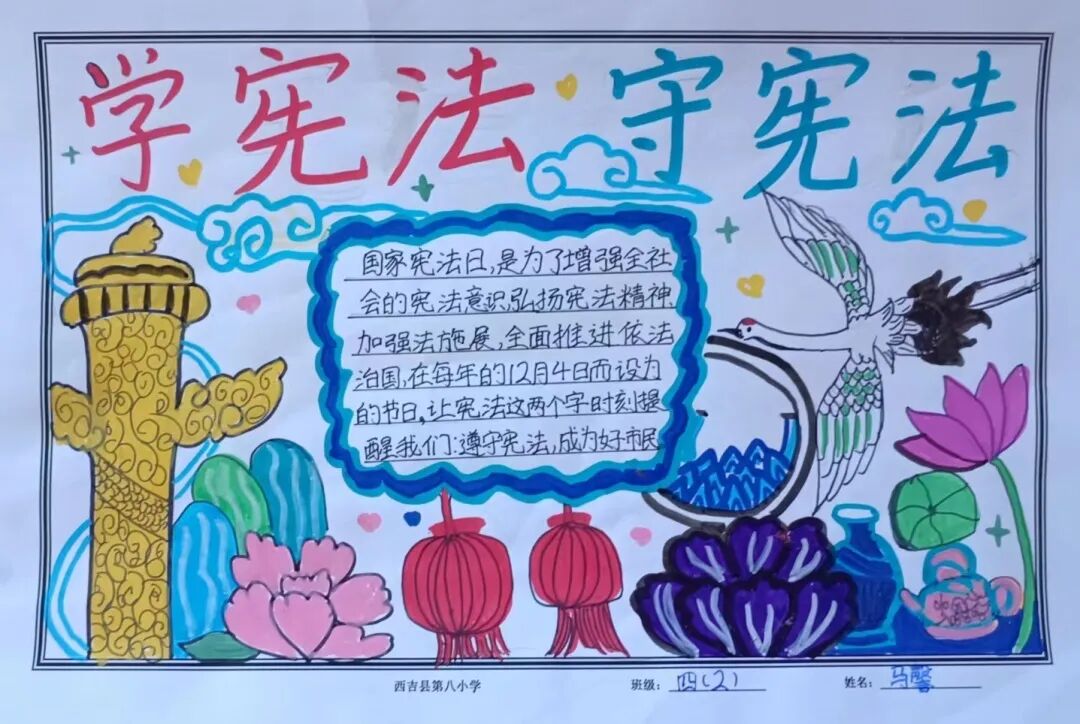 学宪法 守宪法
国家宪法日,是为了增强全社
会的宪法意识弘扬宪法精神
加强法施展,全面推进依法
治国,在每年的12月4日而设为
的节日,让宪法这两个字时刻提
醒我们:遵守宪法,成为好市民
西吉县第八小学 班级: 四(2) 姓名: 马馨